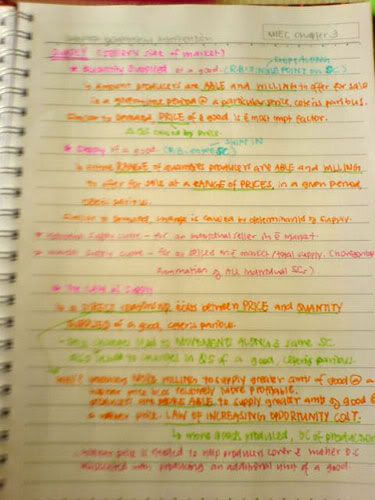 MIEC Chapter 3
SUPPLY (SELLER'S side of market)
* Quantity Supplied of a good. (R.B. SINGLE POINT on SC)
↳ Amount producers are ABLE and WILLING to offer for sale
in a given time PERIOD @ a particular price, ceteris paribus.
Similar to demand, PRICE of a good is most impt factor.
Δ QS caused by Price.
SHIFT IN
* Supply of a good. (R.B. entire SC)
↳ entire RANGE of quantities producers are ABLE and WILLING
to offer for sale at a RANGE OF PRICES, in a given period,
ceteris paribus.
Similar to demand, change is caused by determinants of supply.
* Individual supply curve - for an individual seller in market
* Market supply curve - for all sellers in market/total supply. (horizontal
summation of all individual SCs)
* The Law of Supply
↳ a DIRECT relationship exists between PRICE and QUANTITY
SUPPLIED of a good, ceteris paribus.
changes lead to MOVEMENTS ALONG same SC
leads to changes in QS of a good, ceteris paribus.
producers MORE WILLING to supply greater amts of good @ a
higher price bcos relatively more profitable.
producers are MORE ABLE to supply greater amts of good @
a higher price. LAW OF INCREASING OPPORTUNITY COST.
↳ more goods produced, OC of production
higher price is needed to help producers cover higher OC
associated with producing an additional unit of a good.